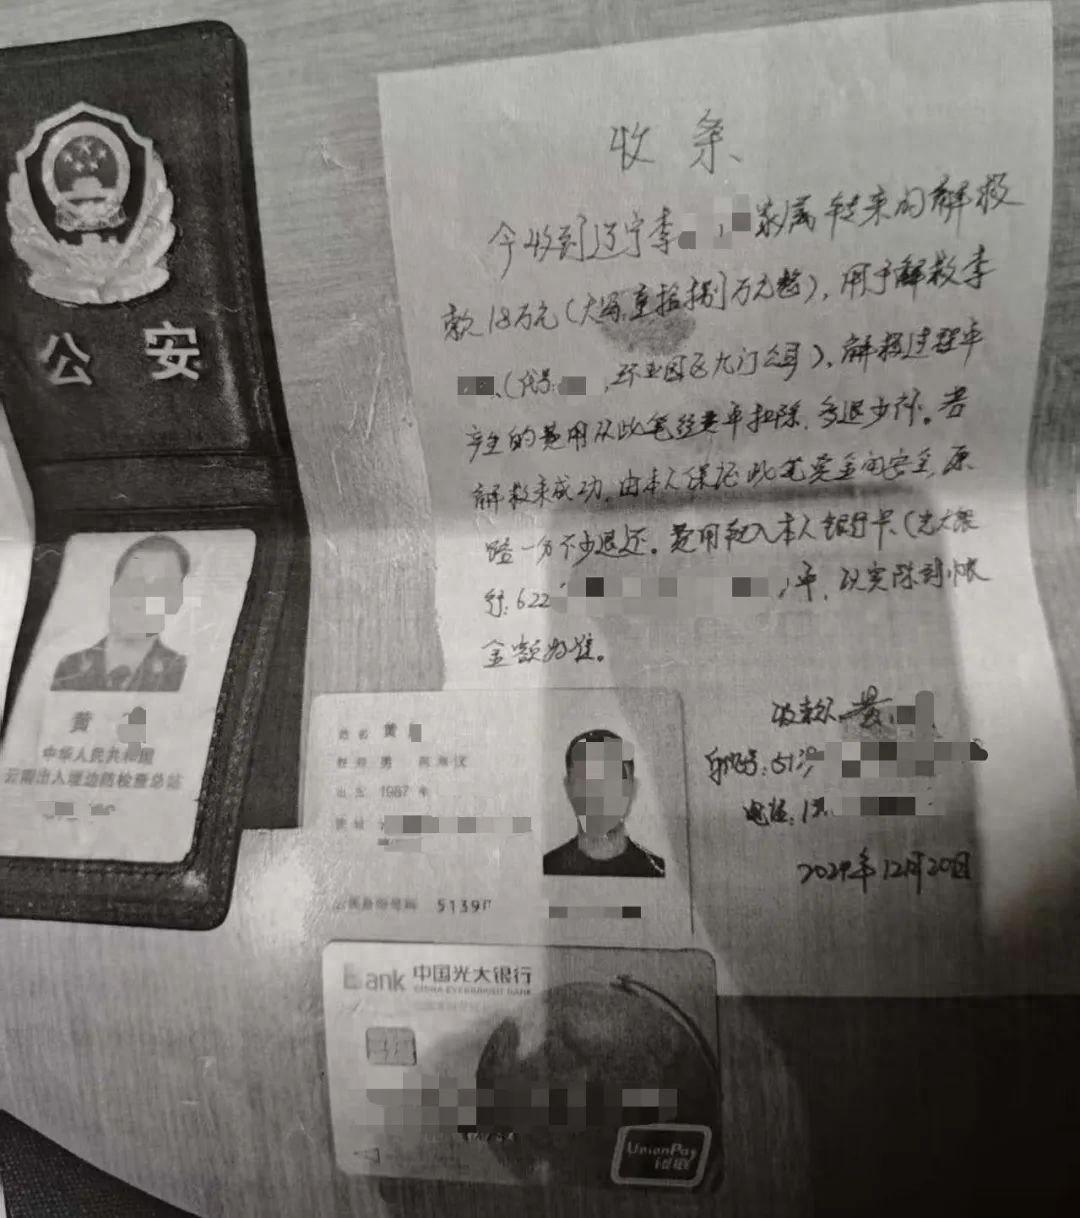 公安
黄
中华人民共和国
云南出入境边防检查总站
收条
今收到辽宁李 家属转来的解救
款18万元(大写:壹拾捌万元整),用于解救李
(代号: ,环亚园区九门公司),解救过程中
产生的费用从此笔经费中扣除,多退少补。若
解救未成功,由本人保证此笔资金的安全,原
路一分不少退还。费用转入本人银行卡(光大银
行:622 )中,以实际到账
金额为准。
收款人:黄
身份证号:513
电话:1
2024年12月20日
姓名 黄
性别 男 民族汉
出生 1987 年
住址
公民身份号码 5139
Bank 中国光大银行
CHINA EVERBRIGHT BANK
UnionPay
银联